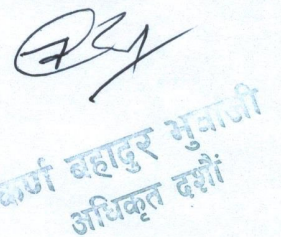 कर्ण बहादुर भुसाल
अधिकृत दशौं